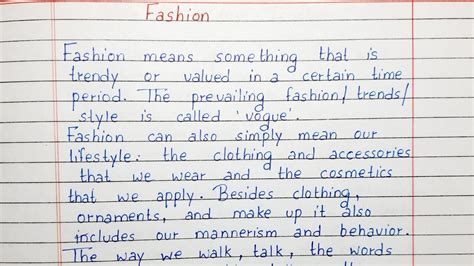 Fashion
Fashion means something that is
trendy or valued in a certain time
period. The prevailing fashion/trends/
style is called 'vogue'.
Fashion can also simply mean our
lifestyle: the clothing and accessories
that we wear and the cosmetics
that we apply. Besides clothing,
ornaments, and make up it also
includes our mannerism and behavior.
The way we walk, talk, the words